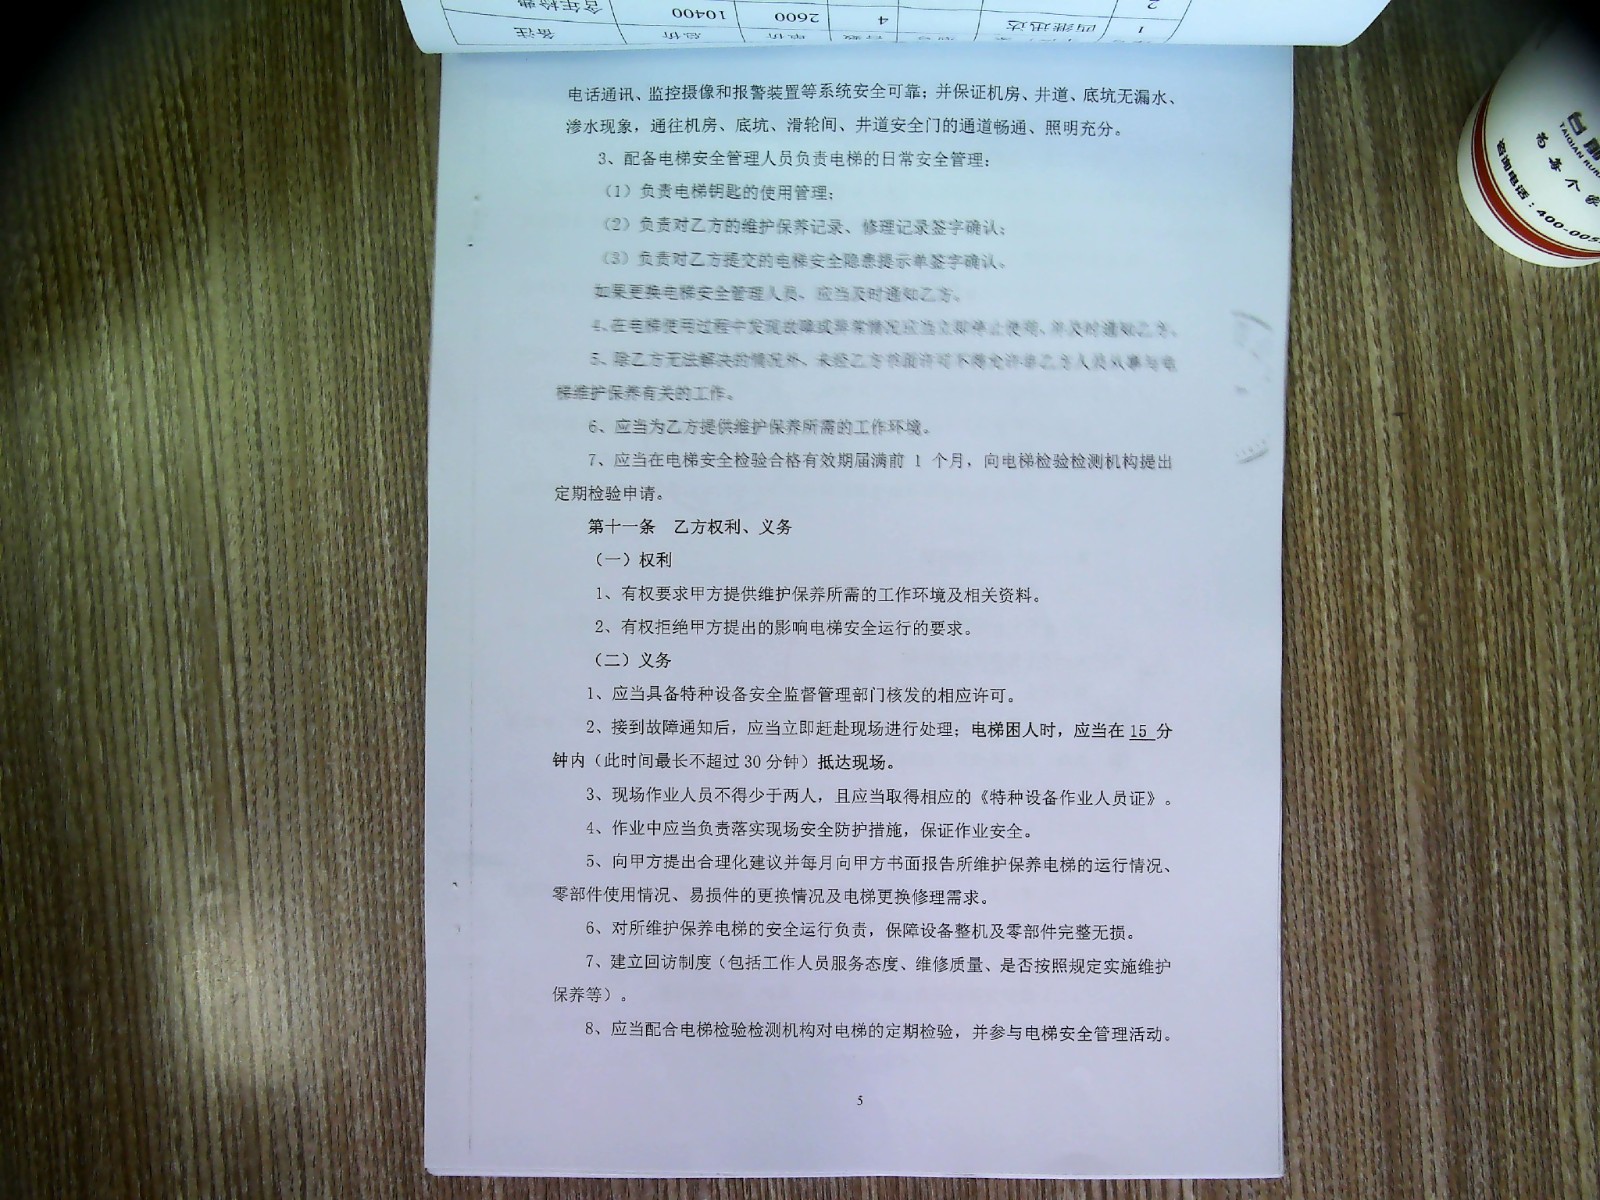 备注 总价 单价 台数
含年检费 10400 2600 4 西继迅达 1
2
电话通讯、监控摄像和报警装置等系统安全可靠；并保证机房、井道、底坑无漏水、
渗水现象，通往机房、底坑、滑轮间、井道安全门的通道畅通、照明充分。
3、配备电梯安全管理人员负责电梯的日常安全管理：
（1）负责电梯钥匙的使用管理；
（2）负责对乙方的维护保养记录、修理记录签字确认；
（3）负责对乙方提交的电梯安全隐患提示单签字确认。
如果更换电梯安全管理人员、应当及时通知乙方。
4、在电梯使用过程中发现故障或异常情况应当立即停止使用、并及时通知乙方。
5、除乙方无法解决的情况外、未经乙方书面许可不得允许非乙方人员从事与电
梯维护保养有关的工作。
6、应当为乙方提供维护保养所需的工作环境。
7、应当在电梯安全检验合格有效期届满前 1 个月，向电梯检验检测机构提出
定期检验申请。
第十一条 乙方权利、义务
（一）权利
1、有权要求甲方提供维护保养所需的工作环境及相关资料。
2、有权拒绝甲方提出的影响电梯安全运行的要求。
（二）义务
1、应当具备特种设备安全监督管理部门核发的相应许可。
2、接到故障通知后，应当立即赶赴现场进行处理；电梯困人时，应当在 15 分
钟内（此时间最长不超过 30 分钟）抵达现场。
3、现场作业人员不得少于两人，且应当取得相应的《特种设备作业人员证》。
4、作业中应当负责落实现场安全防护措施，保证作业安全。
5、向甲方提出合理化建议并每月向甲方书面报告所维护保养电梯的运行情况、
零部件使用情况、易损件的更换情况及电梯更换修理需求。
6、对所维护保养电梯的安全运行负责，保障设备整机及零部件完整无损。
7、建立回访制度（包括工作人员服务态度、维修质量、是否按照规定实施维护
保养等）。
8、应当配合电梯检验检测机构对电梯的定期检验，并参与电梯安全管理活动。
5
TAIQIAN RURA
咨询电话：400-005